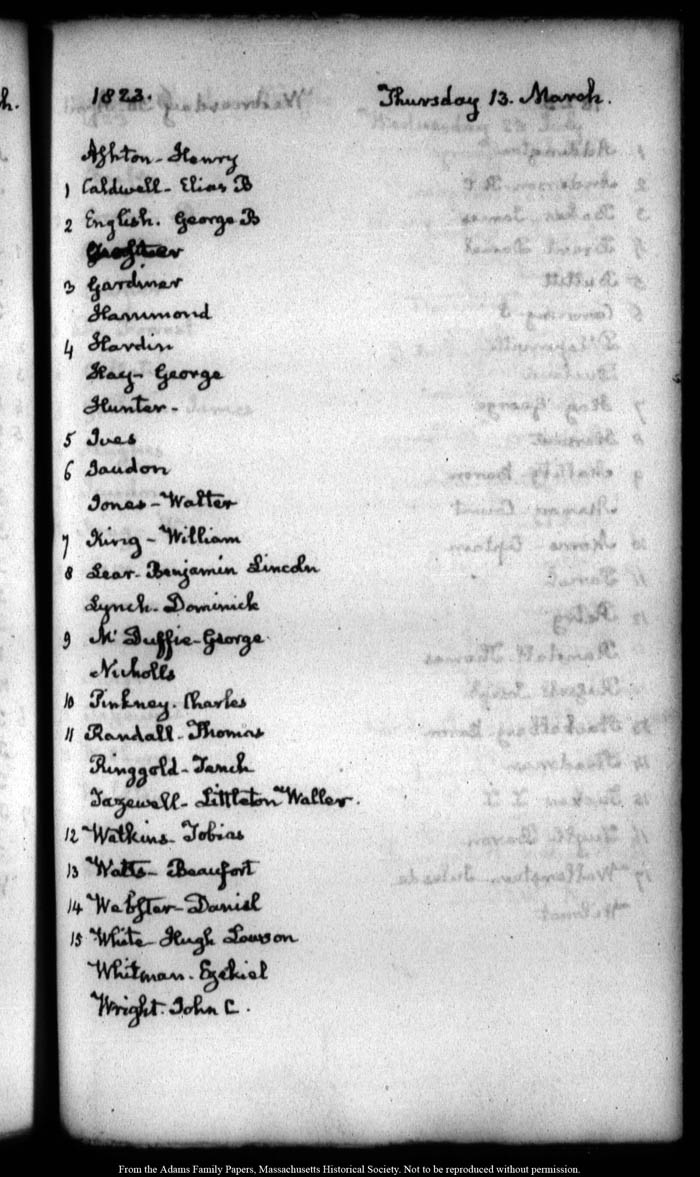 h.
1823. Thursday 13. March.
Ashton - Henry
1 Caldwell - Elias B
2 English. George B
3 Gardiner
Hammond
4 Hardin
Hay - George
Hunter -
5 Ives
6 Jaudon
Jones - Walter
7 King - William
8 Lear - Benjamin Lincoln
Lynch - Dominick
9 McDuffie - George
Nicholls
10 Pinkney. Charles
11 Randall - Thomas
Ringgold - Tench
Tazewell - Littleton Waller.
12 Watkins - Tobias
13 Watts - Beaufort
14 Webster - Daniel
15 White - Hugh Lawson
Whitman - Ezekiel
Wright - John C.
From the Adams Family Papers, Massachusetts Historical Society. Not to be reproduced without permission.